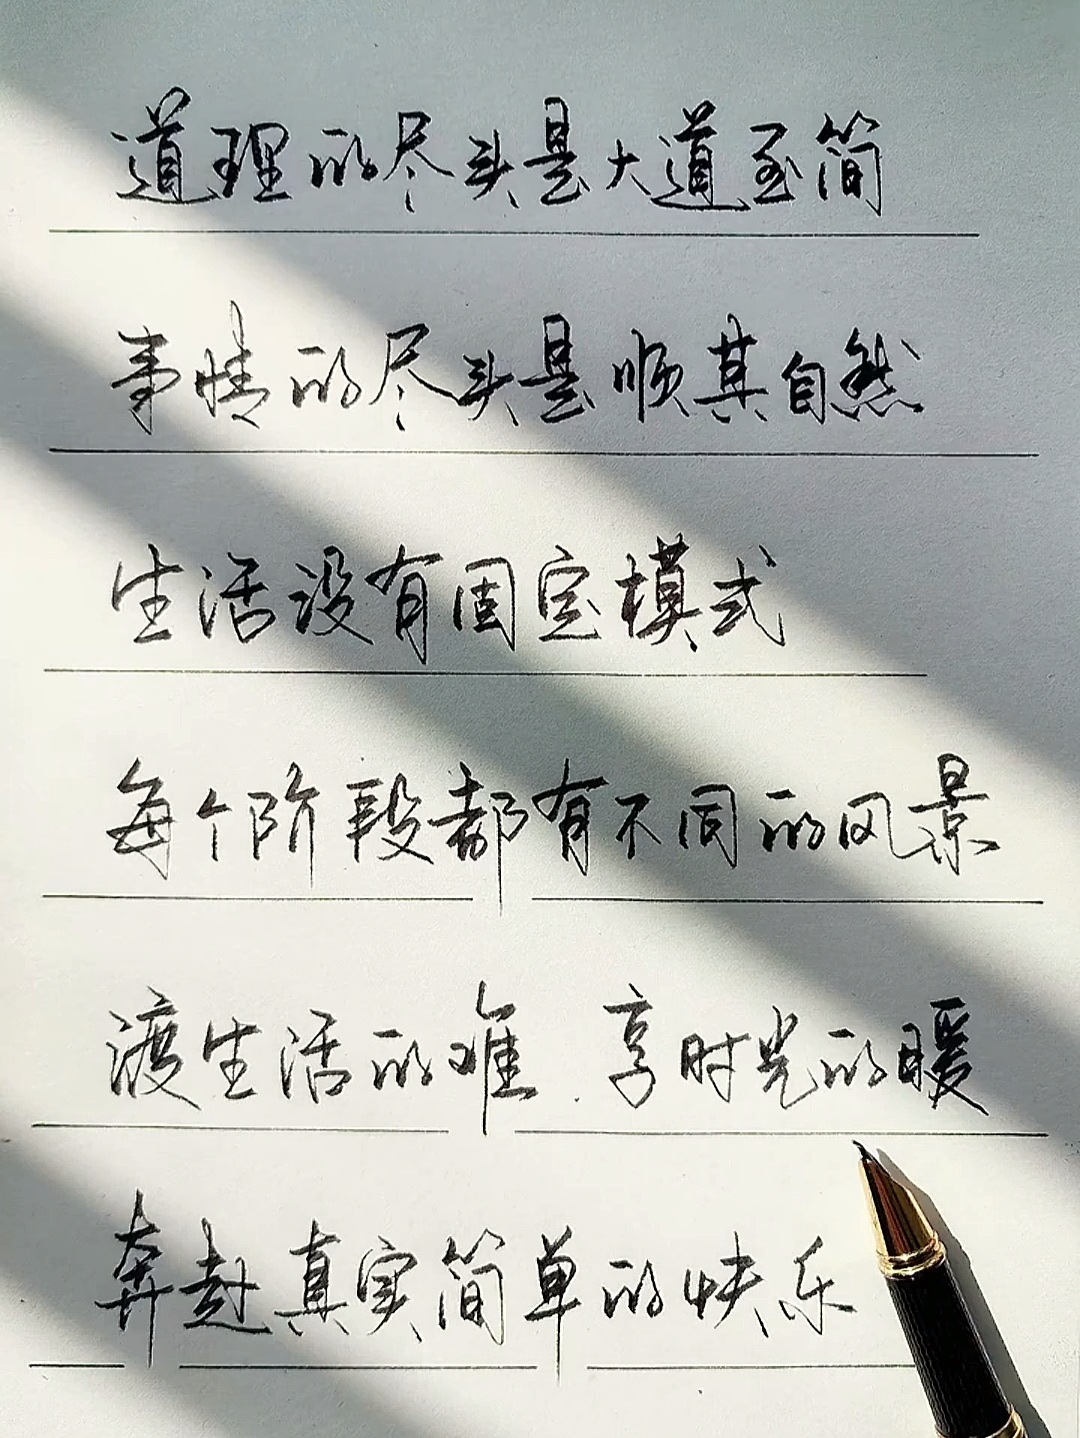 道理的尽头是大道至简
事情的尽头是顺其自然
生活没有固定模式
每个阶段都有不同的风景
渡生活的难 享时光的暖
奔赴真实简单的快乐